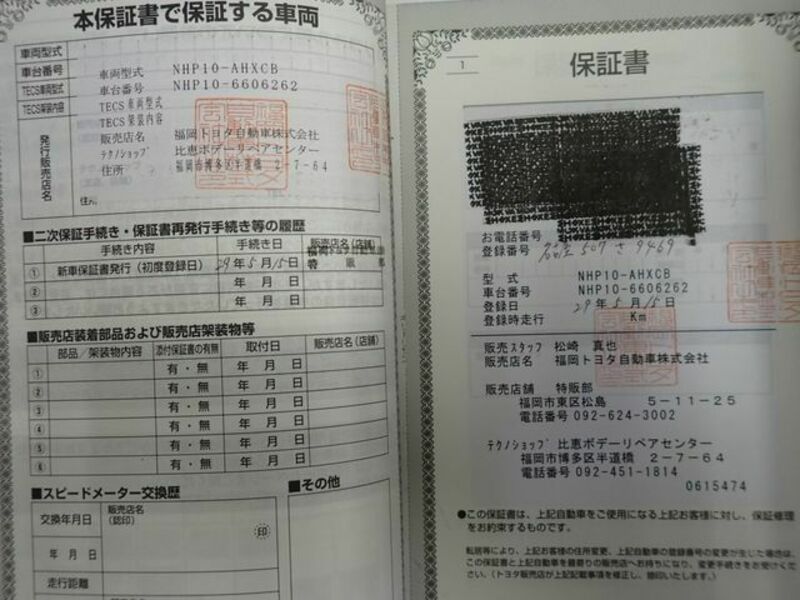 本保証書で保証する車両
車両型式
車台番号
TECS車両型式
TECS架装内容
発行販売店名
車両型式 NHP10-AHXCB
車台番号 NHP10-6606262
TECS車両型式
TECS架装内容
販売店名 福岡トヨタ自動車株式会社
テクノショップ 比恵ボデーリペアセンター
住所 福岡市博多区半道橋 2-7-64
■二次保証手続き・保証書再発行手続き等の履歴
手続き内容 手続き日 販売店名(店舗)
① 新車保証書発行(初度登録日) 29年5月15日
② 年 月 日
③ 年 月 日
■販売店装着部品および販売店架装物等
部品/架装物内容 添付保証書の有無 取付日 販売店名(店舗)
① 有・無 年 月 日
② 有・無 年 月 日
③ 有・無 年 月 日
④ 有・無 年 月 日
⑤ 有・無 年 月 日
⑥ 有・無 年 月 日
■スピードメーター交換歴
交換年月日 販売店名(認印) 印
年 月 日
走行距離
販売店名
■その他
1
保証書
お電話番号
登録番号 507 さ 9469
型式 NHP10-AHXCB
車台番号 NHP10-6606262
登録日 29年5月15日
登録時走行 Km
販売スタッフ 松崎 真也
販売店名 福岡トヨタ自動車株式会社
販売店舗 特販部
福岡市東区松島 5-11-25
電話番号 092-624-3002
テクノショップ 比恵ボデーリペアセンター
福岡市博多区半道橋 2-7-64
電話番号 092-451-1814
0615474
●この保証書は、上記自動車をご使用になる上記お客様に対し、保証修理
をお約束するものです。
転居等により、上記お客様の住所変更、上記自動車の登録番号の変更が生じた場合は、
この保証書と上記自動車を最寄りの販売店へお持ちになり、変更手続きをお受けくだ
さい。(トヨタ販売店が上記記載事項を修正し、捺印いたします。)